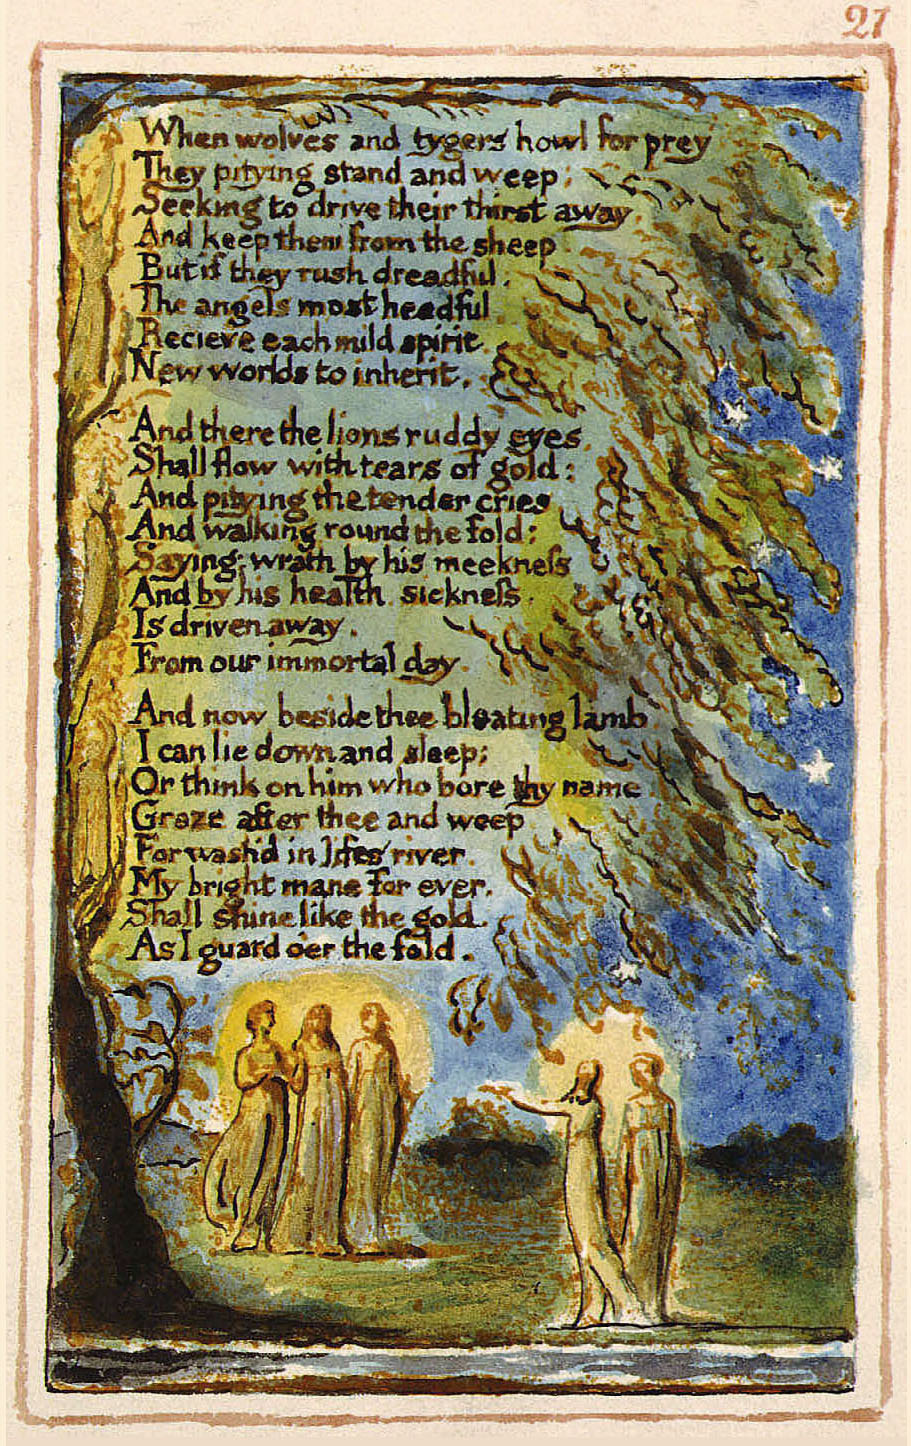 21
When wolves and tygers howl for prey
They pitying stand and weep;
Seeking to drive their thirst away,
And keep them from the sheep.
But if they rush dreadful;
The angels most heedful,
Recieve each mild spirit,
New worlds to inherit.
And there the lions ruddy eyes,
Shall flow with tears of gold:
And pitying the tender cries,
And walking round the fold:
Saying: wrath by his meekneſs
And by his health, sickneſs,
Is driven away,
From our immortal day.
And now beside thee bleating lamb,
I can lie down and sleep;
Or think on him who bore thy name,
Graze after thee and weep.
For wash'd in lifes river,
My bright mane for ever,
Shall shine like the gold,
As I guard o'er the fold.